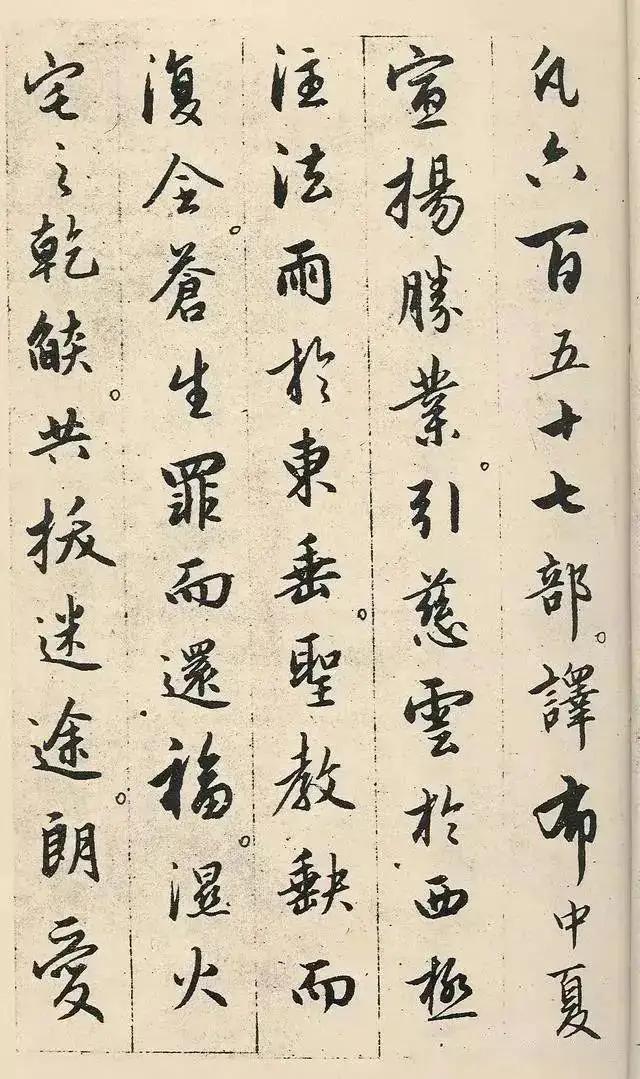 凡六百五十七部。譯布中夏
宣揚勝業。引慈雲於西極
注法雨於東垂。聖教缺而
復全。蒼生罪而還福。濕火
宅之乾燄。共拔迷途。朗愛